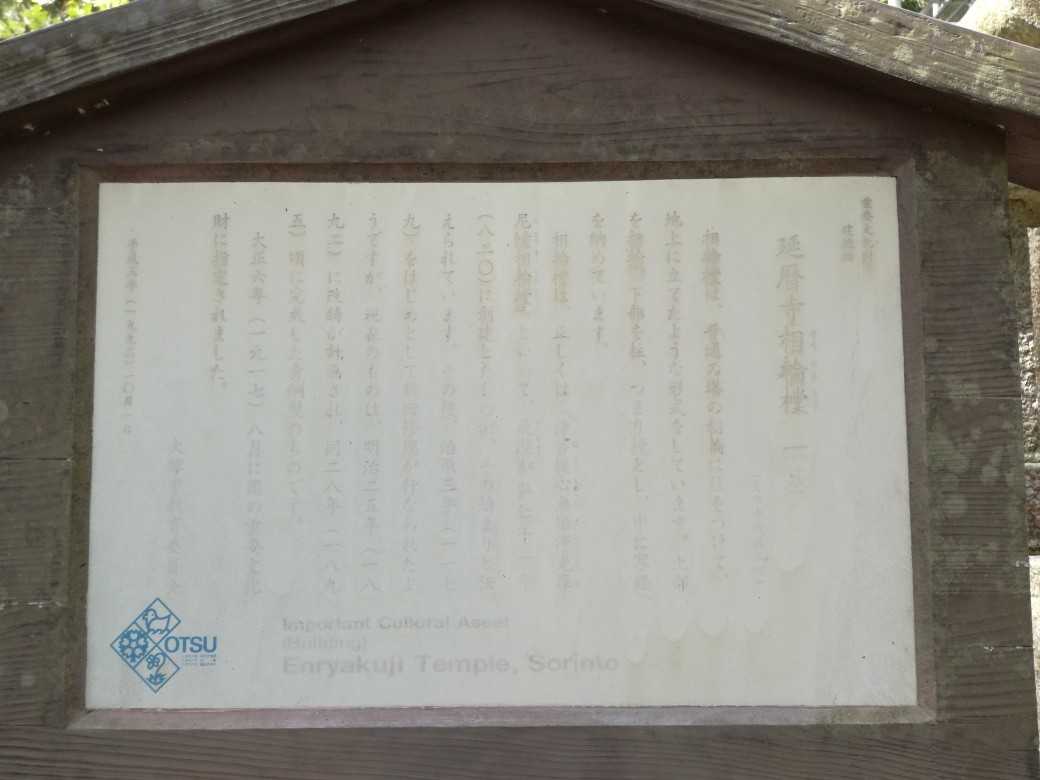 重要文化財
建造物
延暦寺相輪橖 一基
相輪橖は、普通の塔の相輪に柱をつけて、
地上に立てたような形式をしています。上部
を相輪、下部を柱、つまり橖とし、中に宝経
を納めています。
相輪橖は、正しくは
尼幢相輪橖
(八二〇)に創建したものが、この始まりと伝
えられています。その後、治承三年(一一七
九)をはじめとして数回修理が行なわれたよ
うですが、現在のものは、明治二五年(一八
九二)に改鋳が計画され、同二八年(一八九
五)頃に完成した青銅製のものです。
大正六年(一九一七)八月に国の重要文化
財に指定されました。
大津市教育委員会
Important Cultural Asset
(Building)
Enryakuji Temple, Sorinto
OTSU